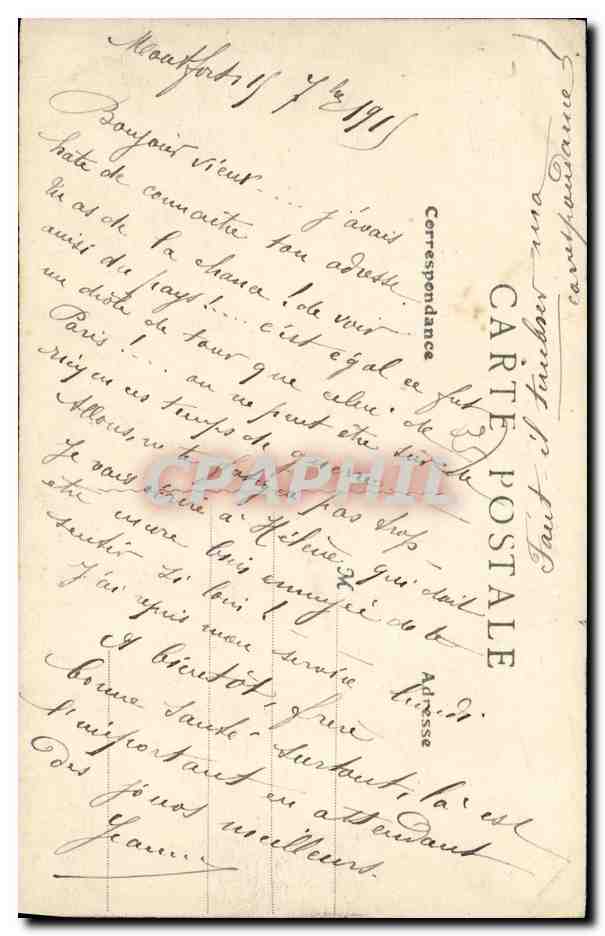 Montfort 15 7bre 1915
Bonjour vieux.... j'avais
hate de connaitre ton adresse
tu as de la chance ! de voir
ainsi du pays !.... c'est égal ce fut
un drôle de tour que celui de
Paris !... on ne peut être sûr de
rien en ces temps de guerre
Allons, ne t'en fais pas trop
Je vais écrire à Hélène qui doit
être encore bien ennuyée de te
sentir si loin !
J'ai repris mon service lundi
A bientôt, frère
bonne santé surtout, là est
l'important en attendant
des jours meilleurs.
Jeanne
Faut-il timbrer ma
correspondance ?
CARTE POSTALE
Correspondance
Adresse
CPAPHIL